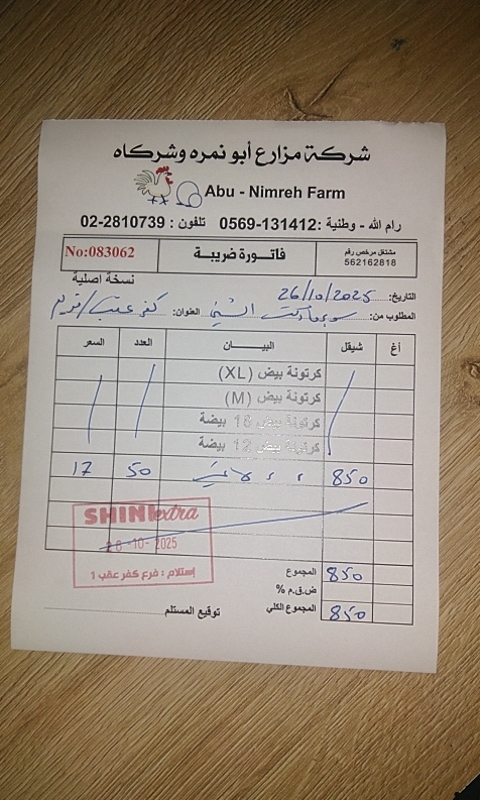 شركة مزارع أبو نمره وشركاه
Abu - Nimreh Farm
رام الله - وطنية :0569-131412 تلفون : 02-2810739
مشتغل مرخص رقم
562162818
فاتورة ضريبة
No:083062
نسخة اصلية
التاريخ: 26/10/2025
المطلوب من: سوبرماركت الشيخ العنوان: كفر عقب/
أغ شيقل البيـــان العدد السعر
كرتونة بيض (XL)
كرتونة بيض (M)
كرتونة بيض 18 بيضة
كرتونة بيض 12 بيضة
850 50 17
SHINI extra
28-10-2025
إستلام : فرع كفر عقب 1
المجموع 850
ض.ق.م %
المجموع الكلي 850
توقيع المستلم